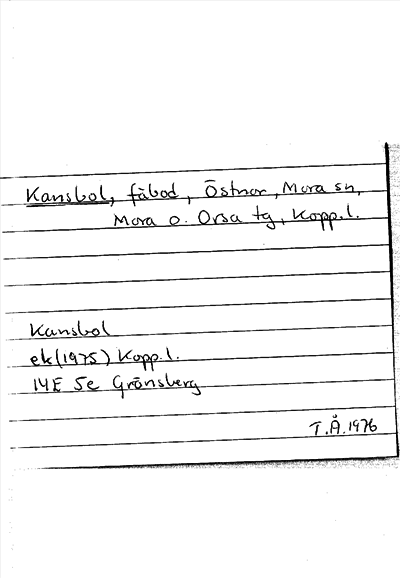 Kansbol, fäbod, Östnor, Mora sn,
Mora o. Orsa tg, Kopp.l.
Kansbol
ek(1975) Kopp.l.
14E 5e Grönsberg
T.Å.1976